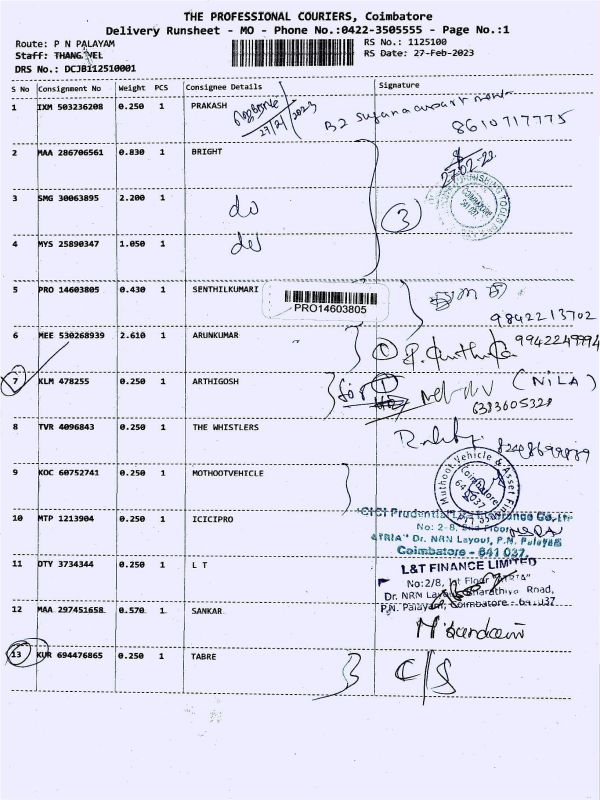 THE PROFESSIONAL COURIERS, Coimbatore
Delivery Runsheet - MO - Phone No.:0422-3505555 - Page No.:1
Route: P N PALAYAM
RS No.: 1125100
Staff: THANGAVEL
RS Date: 27-Feb-2023
DRS No.: DCJB112510001
S No Consignment No Weight PCS Consignee Details Signature
1 IXM 503236208 0.250 1 PRAKASH
27/2/2023
8610717775
2 MAA 286706561 0.830 1 BRIGHT
27-02-23
3 SMG 30063895 2.200 1
do
3
COIMBATORE
4 MYS 25890347 1.050 1
do
5 PRO 14603805 0.430 1 SENTHILKUMARI
PRO14603805
9842213702
6 MEE 530268939 2.610 1 ARUNKUMAR
9942249994
7 KLM 478255 0.250 1 ARTHIGOSH
for 1
(NILA)
6383605328
8 TVR 4096843 0.250 1 THE WHISTLERS
9 KOC 60752741 0.250 1 MOTHOOTVEHICLE
Muthoot Vehicle & Asset
Coimbatore
641 037
10 MTP 1213904 0.250 1 ICICIPRO
ICICI Prudential
No: 2-8, 2nd Floor
"ATRIA" Dr. NRN Layout, P.N. Palayam
Coimbatore - 641 037.
11 OTY 3734344 0.250 1 L T
L&T FINANCE LIMITED
No:2/8, 1st Floor "ATRIA"
Dr. NRN Layout, Bharathiyar Road,
P.N. Palayam, Coimbatore - 641 037
12 MAA 297451658 0.570 1 SANKAR
13 KUR 694476865 0.250 1 TABRE
C/S